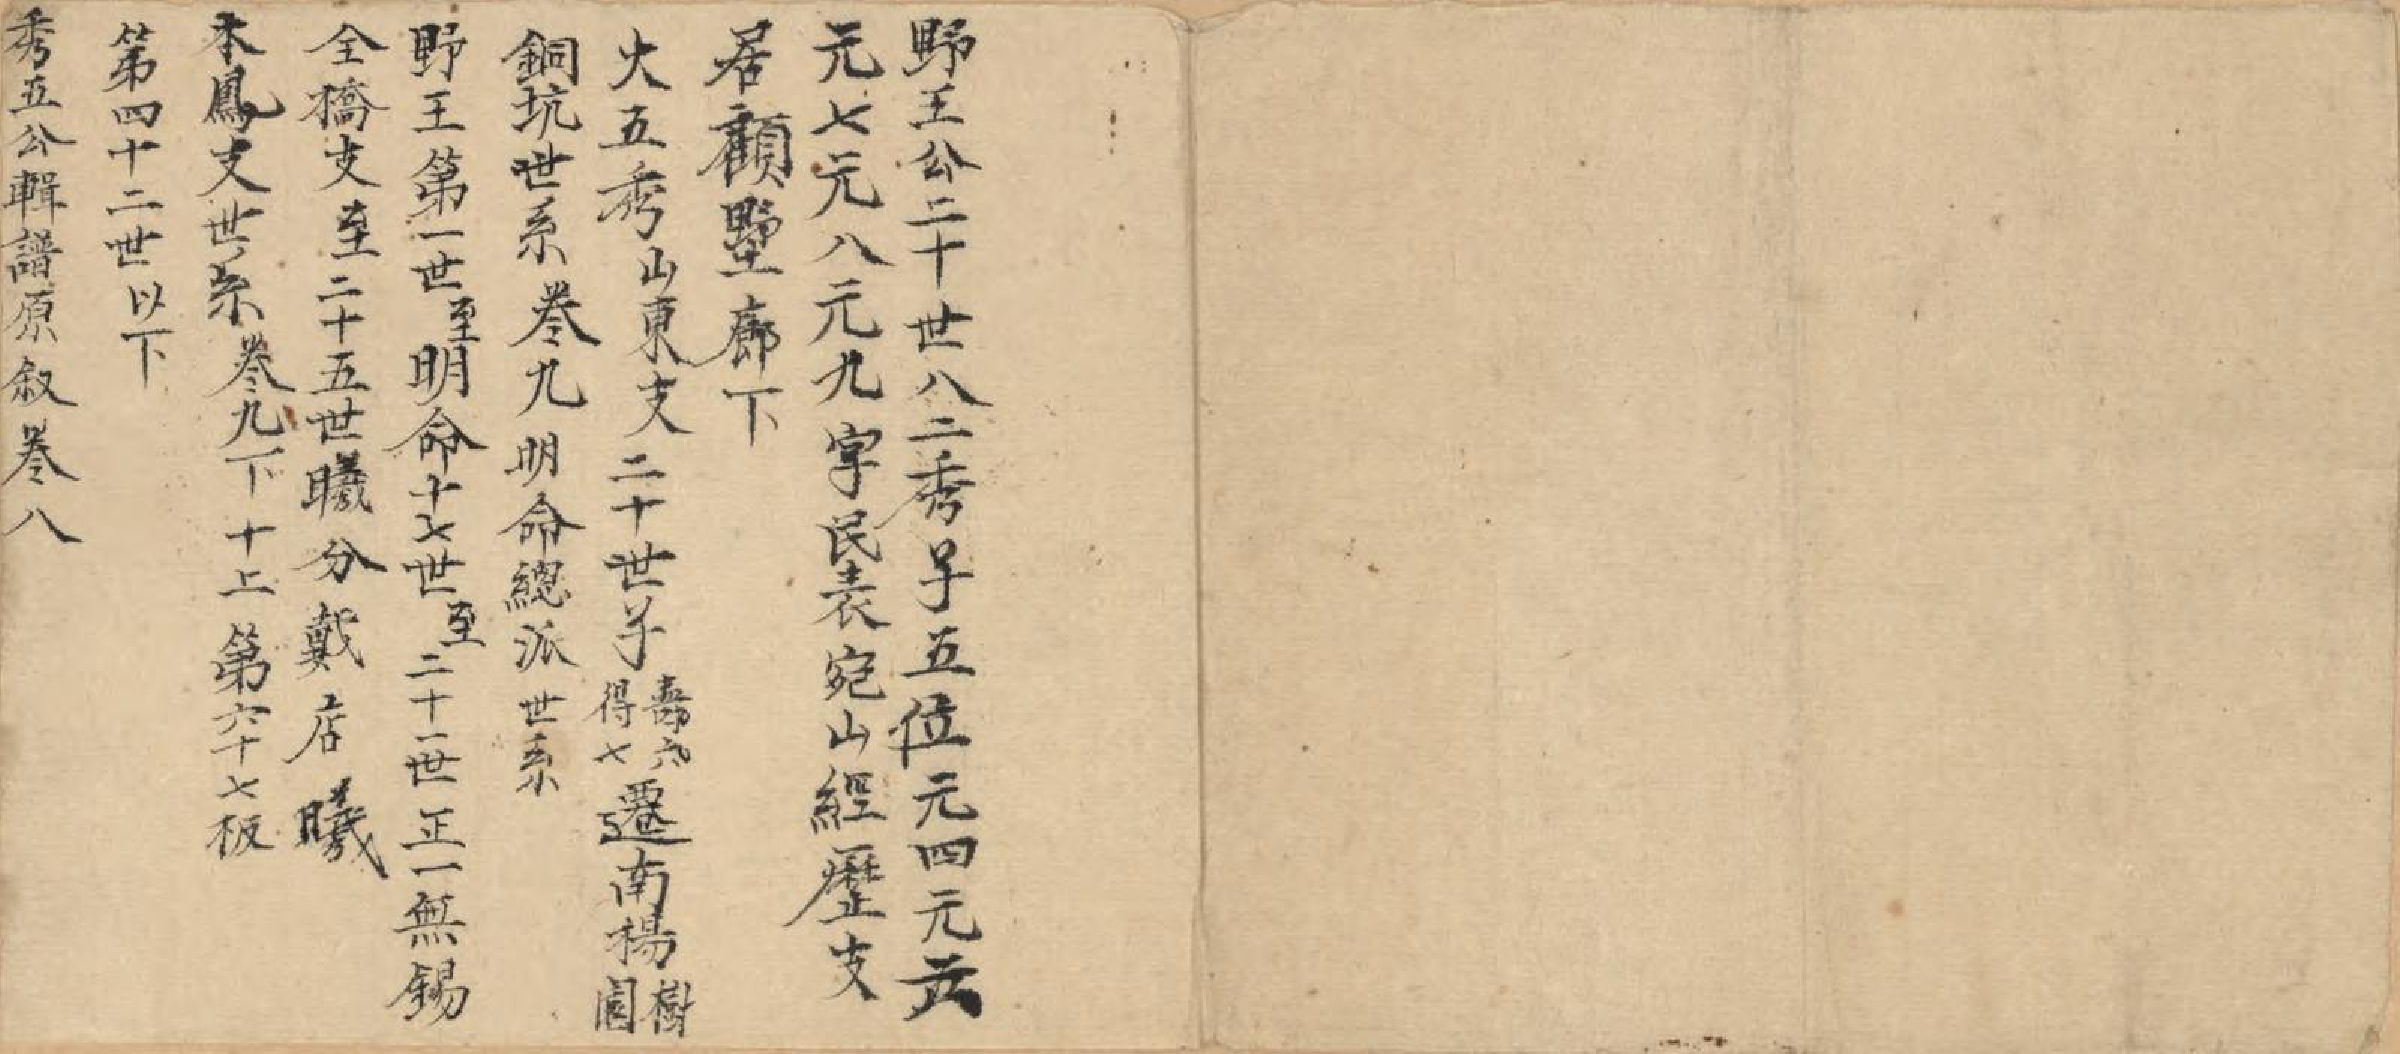 野王公二十世八二秀子五位元四元五
元七元八元九字民表宛山經歷支
居顧墅廊下
大五秀山東支二十世子壽六得七遷南楊樹園
銅坑世系卷九明命總派世系
野王第一世至明命十七世至二十一世正一無錫
全橋支至二十五世曦分戴店曦
木鳳支世系卷九下十上第六十七板
第四十二世以下
秀五公輯譜原叙卷八